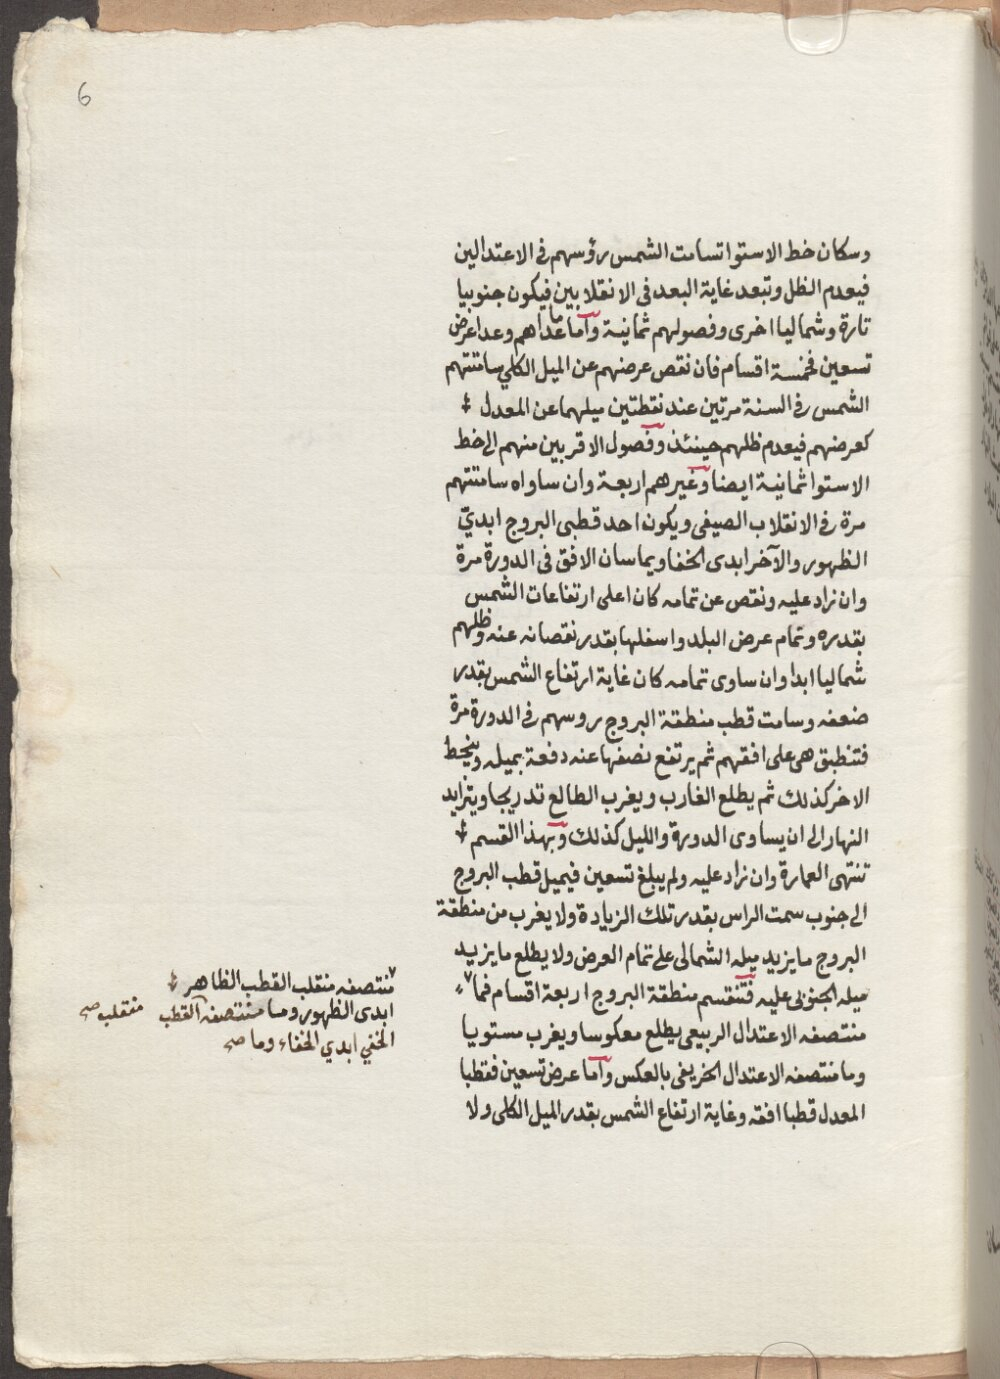 6
وسكان خط الاستوا تسامت الشمس رؤسهم في الاعتدالين
فيعدم الظل وتبعد غاية البعد في الانقلابين فيكون جنوبيا
تارة وشماليا اخرى وفصولهم ثمانية وآما ما عداهم وعدا عرض
تسعين فخمسة اقسام فان نقص عرضهم عن الميل الكلي سامتتهم
الشمس في السنة مرتين عند نقطتين ميلهما عن المعدل
كعرضهم فيعدم ظلهم حينئذ وفصول الاقربين منهم الى خط
الاستوا ثمانية ايضا وغيرهم اربعة وان ساواه سامتتهم
مرة في الانقلاب الصيفي ويكون احد قطبى البروج ابديّ
الظهور والآخر ابدى الخفا ويماسان الافق فى الدورة مرة
وان زاد عليه ونقص عن تمامه كان اعلى ارتفاعات الشمس
بقدره وتمام عرض البلد واسفلها بقدر نقصانه عنه وظلهم
شماليا ابدا وان ساوى تمامه كان غاية ارتفاع الشمس بقدر
ضعفه وسامت قطب منطقة البروج روسهم في الدورة مرة
فتنطبق هى على افقهم ثم يرتفع نصفها عنه دفعة بميله وينحط
الاخر كذلك ثم يطلع الغارب ويغرب الطالع تدريجا ويتزايد
النهار الى ان يساوى الدورة والليل كذلك وبهذا القسم
تنتهى العمارة وان زاد عليه ولم يبلغ تسعين فيميل قطب البروج
الى جنوب سمت الراس بقدر تلك الزيادة ولا يغرب من منطقة
البروج ما يزيد ميله الشمالى على تمام العرض ولا يطلع ما يزيد
ميله الجنوبى عليه فتنقسم منطقة البروج اربعة اقسام فما
منتصفه الاعتدال الربيعى يطلع معكوسا ويغرب مستويا
وما منتصفه الاعتدال الخريفى بالعكس وآما عرض تسعين فقطبا
المعدل قطبا افقه وغاية ارتفاع الشمس بقدر الميل الكلى ولا
منتصفه منقلب القطب الظاهر
ابدى الظهور وما منتصفه القطب
منقلب صح
الخفي ابدي الخفاء وما صح